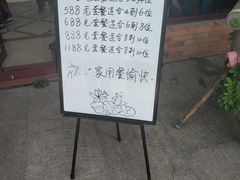 588元套餐适合4到6位
688元套餐适合6到8位
888元套餐适合8到10位
1188元套餐适合8到10位
祝:大家用餐愉快